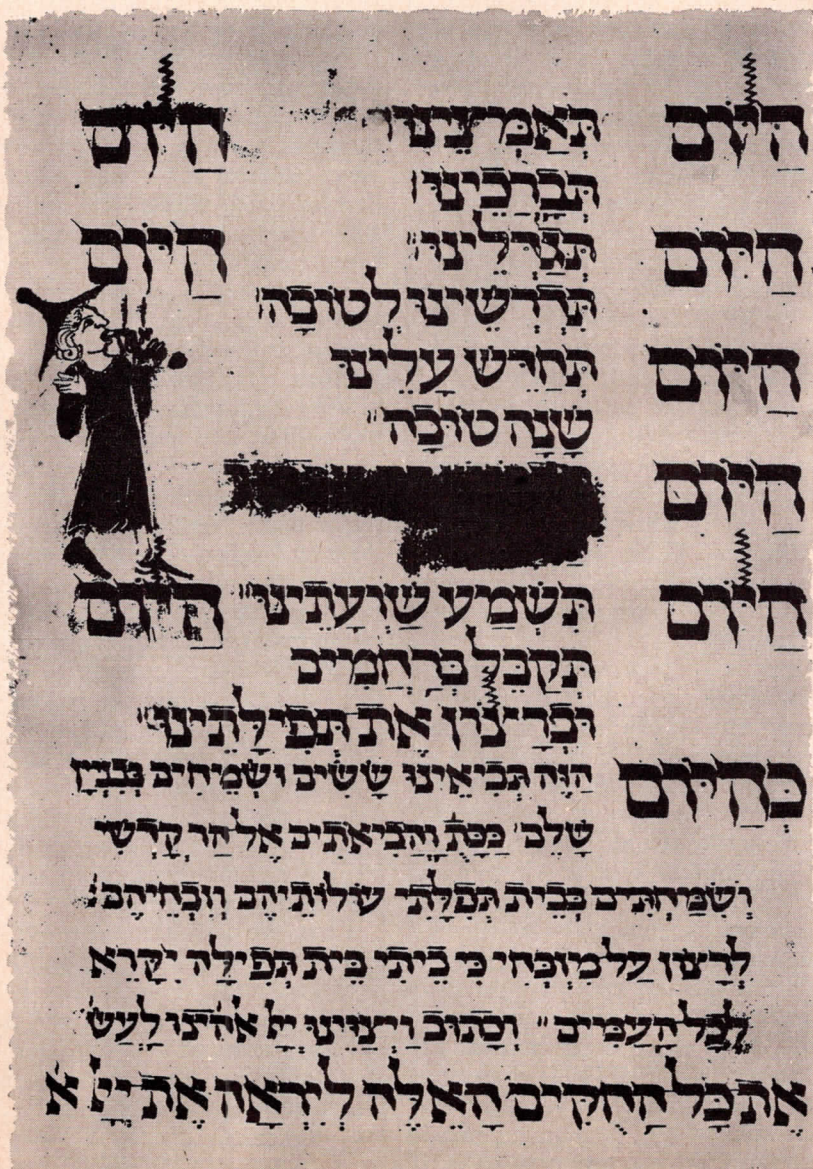 הַיּוֹם תְּאַמְּצֵינוּ הַיּוֹם
תְּבָרְכֵינוּ
הַיּוֹם תְּגַדְּלֵינוּ הַיּוֹם
תִּדְרְשֵׁינוּ לְטוֹבָה
הַיּוֹם תְּחַדֵּשׁ עָלֵינוּ
שָׁנָה טוֹבָה
הַיּוֹם
הַיּוֹם תִּשְׁמַע שַׁוְעָתֵינוּ הַיּוֹם
תְּקַבֵּל בְּרַחֲמִים
וּבְרָצוֹן אֶת תְּפִילָתֵינוּ
כְּהַיּוֹם הַזֶּה תְּבִיאֵינוּ שָׂשִׂים וּשְׂמֵחִים בְּבִנְיָן
שָׁלֵם כַּכָּת׳ וַהֲבִיאֹתִים אֶל הַר קָדְשִׁי
וְשִׂמַּחְתִּים בְּבֵית תְּפִלָּתִי עוֹלוֹתֵיהֶם וְזִבְחֵיהֶם
לְרָצוֹן עַל מִזְבְּחִי כִּי בֵיתִי בֵּית תְּפִילָּה יִקָּרֵא
לְכָל הָעַמִּים וְכָתוּב וַיְצַוֵּינוּ יְיָ אֱלֹהֵינוּ לַעֲשׂ
אֶת כָּל הַחֻקִּים הָאֵלֶּה לְיִרְאָה אֶת יְיָ א